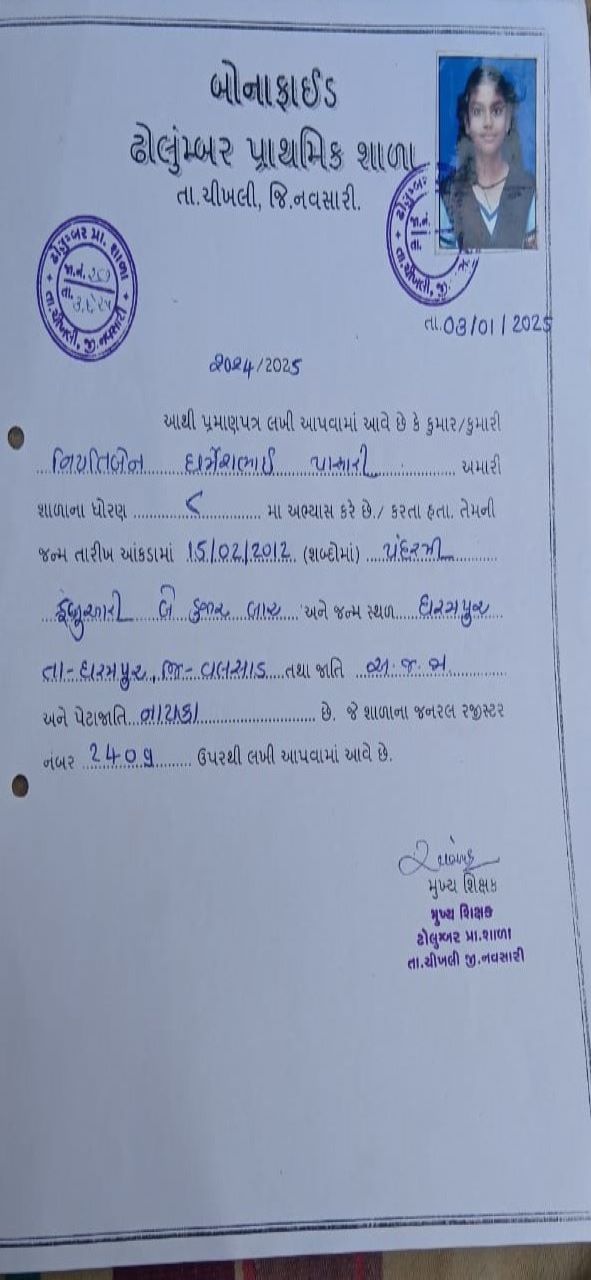 બોનાફાઈડ
ઢોલુંમ્બર પ્રાથમિક શાળા
તા.ચીખલી, જિ.નવસારી.
ઢોલુમ્બર પ્રા. શાળા
જા.નં.
તા.
તા.ચીખલી, જી.નવસારી
તા.03/01/2025
૨૦૨૪/2025
આથી પ્રમાણપત્ર લખી આપવામાં આવે છે કે કુમાર/કુમારી
નિયતિબેન ધર્મેશભાઈ અમારી
શાળાના ધોરણ ૮ મા અભ્યાસ કરે છે./ કરતા હતા. તેમની
જન્મ તારીખ આંકડામાં 15/02/2012 (શબ્દોમાં) પંદરમી
ફેબ્રુઆરી બે હજાર બાર અને જન્મ સ્થળ ધરમપુર
તા-ધરમપુર, જિ-વલસાડ તથા જાતિ અ.જ.જા
અને પેટાજાતિ નાયકા છે. જે શાળાના જનરલ રજીસ્ટર
નંબર 240૭ ઉપરથી લખી આપવામાં આવે છે.
મુખ્ય શિક્ષક
મુખ્ય શિક્ષક
ઢોલુમ્બર પ્રા.શાળા
તા.ચીખલી જી.નવસારી